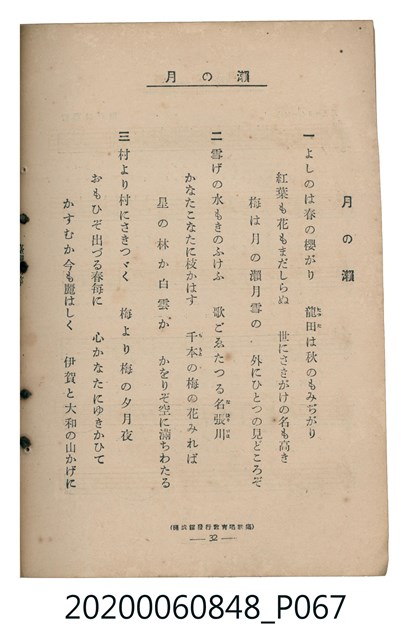 月の瀬
月の瀬
一 よしのは春の櫻がり 龍田は秋のもみぢがり
紅葉も花もまだしらぬ 世にさきがけの名も高き
梅は月の瀬月雪の 外にひとつの見どころぞ
二 雪げの水もきのふけふ 歌ごゑたつる名張川
かなたこなたに枝かはす 千本の梅の花みれば
星の林か白雲か かをりぞ空に滿ちわたる
三 村より村にさきつゞく 梅より梅の夕月夜
おもひぞ出づる春每に 心かなたにゆきかひて
かすむか今も麗はしく 伊賀と大和の山かげに
— 32 —
20200060848_P067